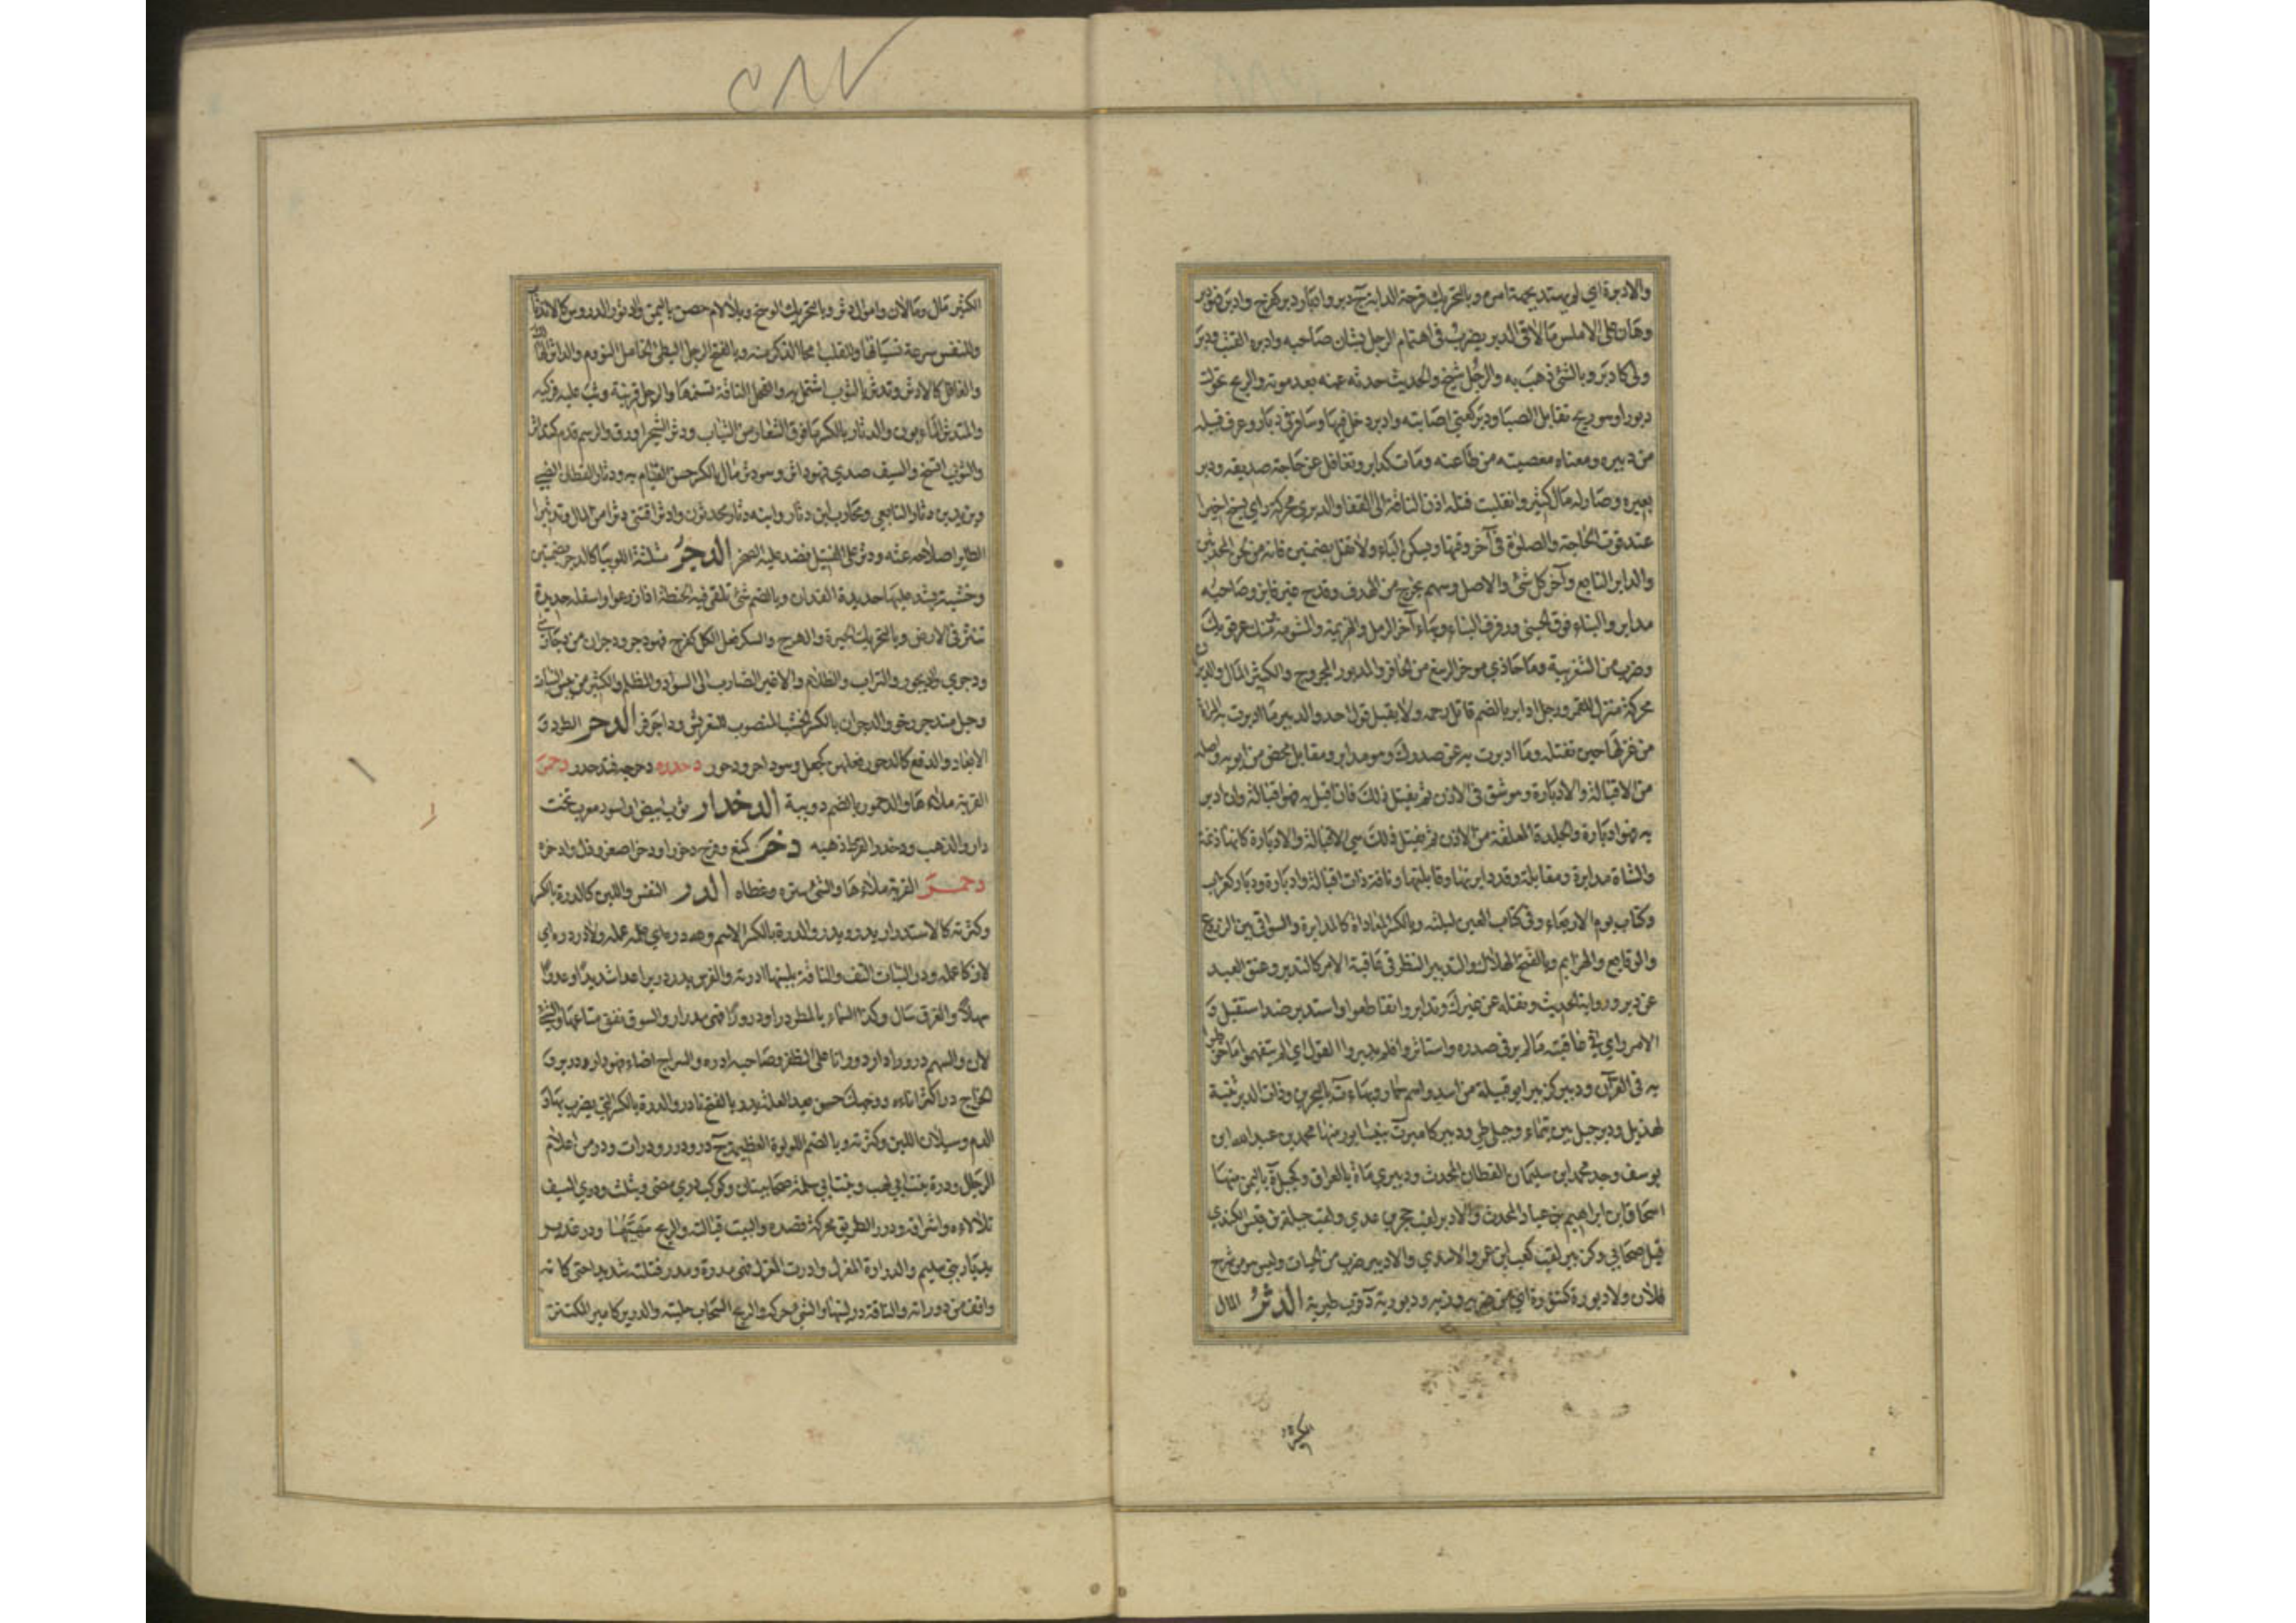 والادبرة اي لم يستد بجهة امره وبالتحريك قرحة الدابة ج دبر وادبار دبر كفرح وادبر فهو دبر
وهان على الاملس ما لاقى الدبر يضرب في اهتمام الرجل بشان صاحبه وادبره القتب ودبر
ولى كادبر وبالشئ ذهب به والرجل شيخ والحديث حدثه عنه بعد موته والريح تحولت
دبورا وهو ريح تقابل الصبا ودبر كعني اصابته وادبر دخل فيها وسافر في دبار وعرف قبيله
من دبيره ومعناه معصيته من طاعته ومات كدابر وتغافل عن حاجة صديقه ودبر
بعيره وصار له مال كثير وانقلبت فتلة اذن الناقة الى القفا والدبري محركة راي يسنح اخيرا
عند فوت الحاجة والصلوة في آخر وقتها ويسكن الباء ولا تقل بضمتين فانه من لحن المحدثين
والدابر التابع وآخر كل شئ والاصل وسهم يخرج من الهدف وقدح غير فايز وصاحبه
مدابر والبناء فوق الحسي ورفرف البناء وبهاء آخر الرمل والهزيمة والشومة ومنك عرقوبك
وضرب من الشغزبية وما حاذي موخر الرسغ من الحافر والمدبور المجروح والكثير المال والدبران
محركة منزل للقمر ورجل ادابر بالضم قاطع رحمه ولا يقبل قول احد والدبير ما ادبرت به المراة
من غزلها حين تفتله وما ادبرت به عن صدرك وهو مدابر ومقابل محض من ابويه واصله
من الاقبالة والادبارة وهو شق في الاذن ثم يفتل ذلك فان اقبل به فهو اقبالة وان ادبر
به فهو ادبارة والجلدة المعلقة من الاذن هي الاقبالة والادبارة كانها زنمة
والشاة مدابرة ومقابلة وقد دابرتها وقابلتها وناقة ذات اقبالة وادبارة ودبار كغراب
وكتاب يوم الاربعاء وفي كتاب العين ليلته وبالكسر المعاداة كالمدابرة والسواقي بين الزروع
والوقايع والهزايم وبالفتح الهلاك والتدبير النظر في عاقبة الامر كالتدبر وعتق العبد
عن دبر ورواية الحديث ونقله عن غيرك وتدابروا تقاطعوا واستدبر ضد استقبل و
الامر راي في عاقبته ما لم ير في صدره واستاثر وافلم يدبروا القول اي الم يتفهموا ما خوطبوا
به في القرآن ودبير كزبير ابو قبيلة من اسد واسم حمار وبهاء ة بالبحرين وذات الدبر ثنية
لهذيل ودبر جبل بين تيماء وجبلي طي ودبير كامير ة بنيسابور منها محمد بن عبد الله ابن
يوسف وجد محمد ابن سليمان القطان المحدث ودبيري ماة بالعراق وكجبل ة باليمن منها
اسحاق ابن ابراهيم بن عباد المحدث والادبر لقب حجر بن عدي ولقب جبلة بن قيس الكندي
قيل صحابي وكزبير لقب كعب ابن عمرو الاسدي والادبير ضرب من الحيات وليس هو من شرج
فلان ولا دبوره كتنوره اي من ضربه وزيه ودبورية ة قرب طبرية الدثر المال
الكثير
الكثير مال ومالان واموال دثر وبالتحريك الوسخ وبلا لام حصن باليمن والدثور الدروس كالاندثار
وللنفس سرعة نسيانها وللقلب امحا الذكر منه وبالفتح الرجل البطئ الخامل النووم والداثر الهالك
والغافل كالادثر وتدثر بالثوب اشتمل به والفحل الناقة تسنمها والرجل قرنه وثب عليه فركبه
والمتدثر الماءبون والدثار بالكسر ما فوق الشعار من الثياب ودثر الشجر اورق والرسم قدم كتداثر
والثوب اتسخ والسيف صدي فهو داثر وهو دثر مال بالكسر حسن القيام به ودثار القطان الضبي
ويزيد بن دثار التابعي ومحارب ابن دثار وابنه دثار محدثون وادثر اقتني دثرا من المال وتدثير
الطاير اصلاحه عشه ودثر على القتيل نضد عليه الصخر الدجر مثلثة اللوبيا كالدجر بضمتين
وخشبة يشد عليها حديدة الفدان وبالضم شئ تلقى فيه الحنطة اذا زرعوا واسفله حديدة
تنثر في الارض وبالتحريك الحيرة والهرج والسكر فعل الكل كفرح فهو دجر ودجران من دجارى
ودجرى والديجور التراب والظلام والاغبر الضارب الى السواد والمظلم والكثير من يبس النبات
وحبل مندجر رخو والدجران بالكسر الخشب المنصوب للتعريش وداجر فر الدحر الطرد و
الابعاد والدفع كالدحور فعلهن كجعل وهو داحر ودحور دحدره دحرجه فتدحدر دحمر
القربة ملاها والدحمور بالضم دويبة الدخدار ثوب ابيض او اسود معرب تخت
دار والذهب ودخدر القرط ذهبه دخر كمنع وفرح دخورا ودخرا صغر وذل وادخره
دخمر القربة ملاءها والشئ ستره وغطاه الدر النفس واللبن كالدرة بالكسر
وكثرته كالاستدرار يدر ويدر والدرة بالكسر الاسم ولله دره اي عمله ولا در دره اي
لا زكا عمله ودر النبات التف والناقة بلبنها ادرته والفرس يدر دريرا عدا شديدا او عدوا
سهلا والعرق سال وكذا السماء بالمطر درا ودرورا فهي مدرار والسوق نفق متاعها والشئ
لان والسهم درورا دار دورانا على الظفر وصاحبه ادره والسراج اضاء فهو دار ودرير و
الخراج درا كثر اتاءه ووجهك حسن بعد العلة يدر بالفتح نادر والدرة بالكسر التي يضرب بها و
الدم وسيلان اللبن وكثرته وبالضم اللولوة العظيمة ج در ودرر ودرات ودر من اعلام
الرجال ودرة بنت ابي لهب وبنت ابي سلمة صحابيتان وكوكب دري مضئ ويثلث ودري السيف
تلالاءه واشراقه ودرر الطريق محركة قصده والبيت قبالته والريح مهبها ودر غدير
بديار بني سليم والدرارة المغزل وادرت المغزل فهي مدرة ومدر فتلته شديدا حتى كانه
واقف من دورانه والناقة در لبنها والشئ حركه والريح السحاب حلبته والدرير كامير المكتنز